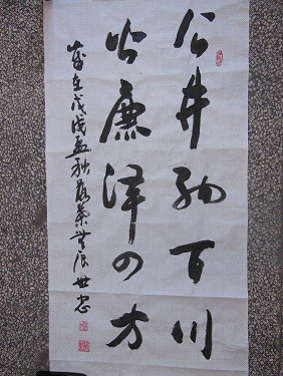 公井纳百川
廉泽四方
岁在戊戌孟秋世忠